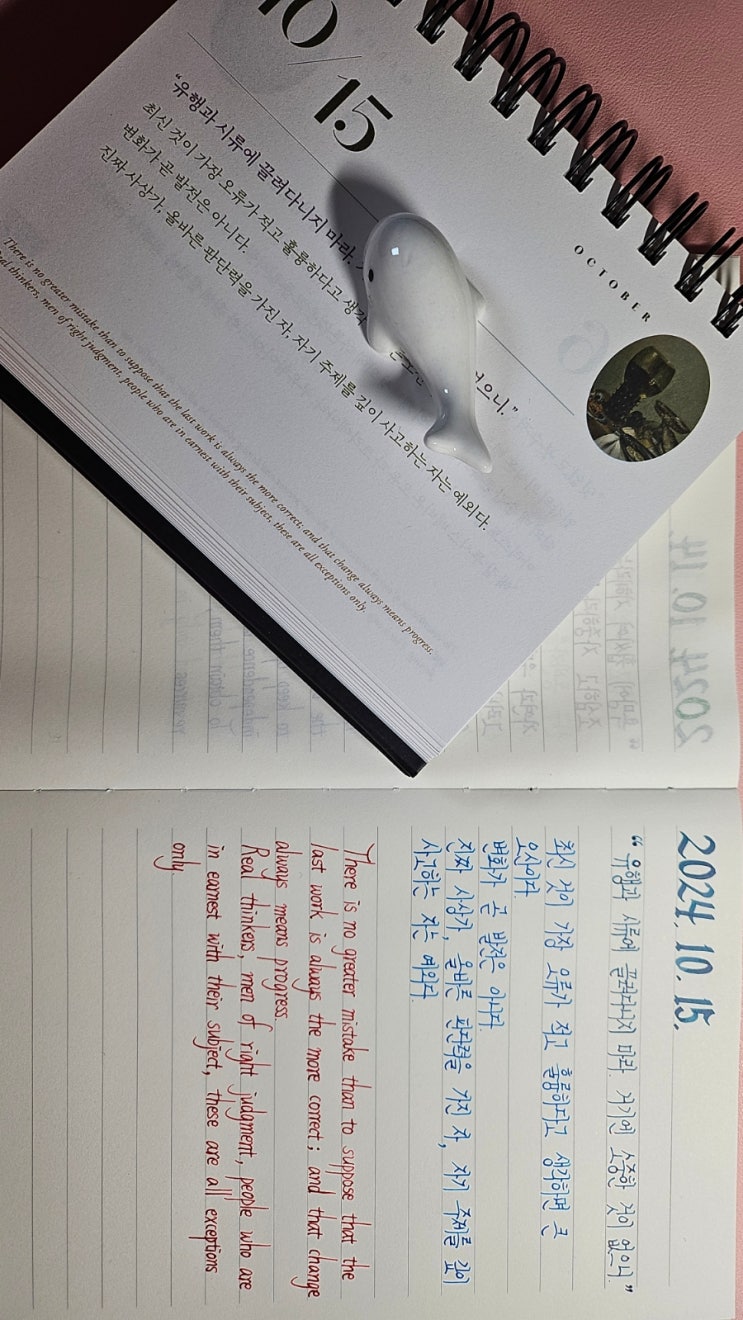 10/15
OCTOBER
“유행과 시류에 끌려다니지 마라.
없으니.”
최신 것이 가장 오류가 적고 훌륭하다고 생각
변화가 곧 발전은 아니다.
진짜 사상가, 올바른 판단력을 가진 자, 자기 주제를 깊이 사고하는 자는 예외다.
There is no greater mistake than to suppose that the last work is always the more correct; and that change always means progress.
real thinkers, men of right judgment, people who are in earnest with their subject, these are all exceptions only.
2024. 10. 14
2024. 10. 15.
“유행과 시류에 끌려다니지 마라. 거기엔 소중한 것이 없으니.”
최신 것이 가장 오류가 적고 훌륭하다고 생각하면 큰
오산이다.
변화가 곧 발전은 아니다.
진짜 사상가, 올바른 판단력을 가진 자, 자기 주제를 깊이
사고하는 자는 예외다.
There is no greater mistake than to suppose that the
last work is always the more correct; and that change
always means progress.
Real thinkers, men of right judgment, people who are
in earnest with their subject, these are all exceptions
only.